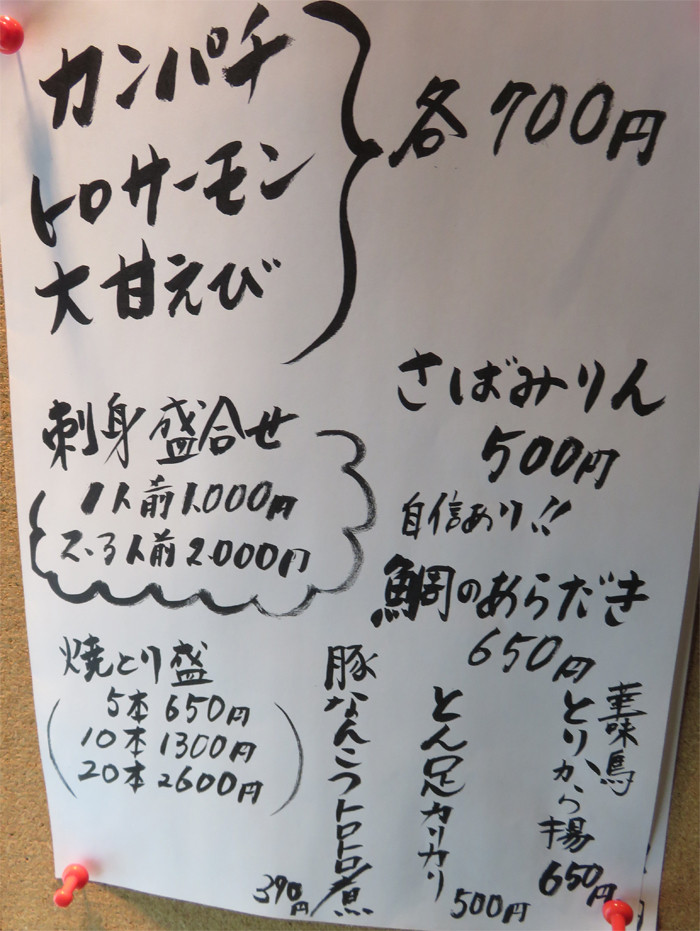 カンパチ
トロサーモン
大甘えび
各700円
刺身盛合せ
1人前1.000円
2.3人前2.000円
さばみりん
500円
自信あり!!
鯛のあらだき
650円
焼とり盛
5本650円
10本1300円
20本2600円
華味鳥
とりから揚
650円
とん足カリカリ
500円
豚なんこつトロトロ煮
390円